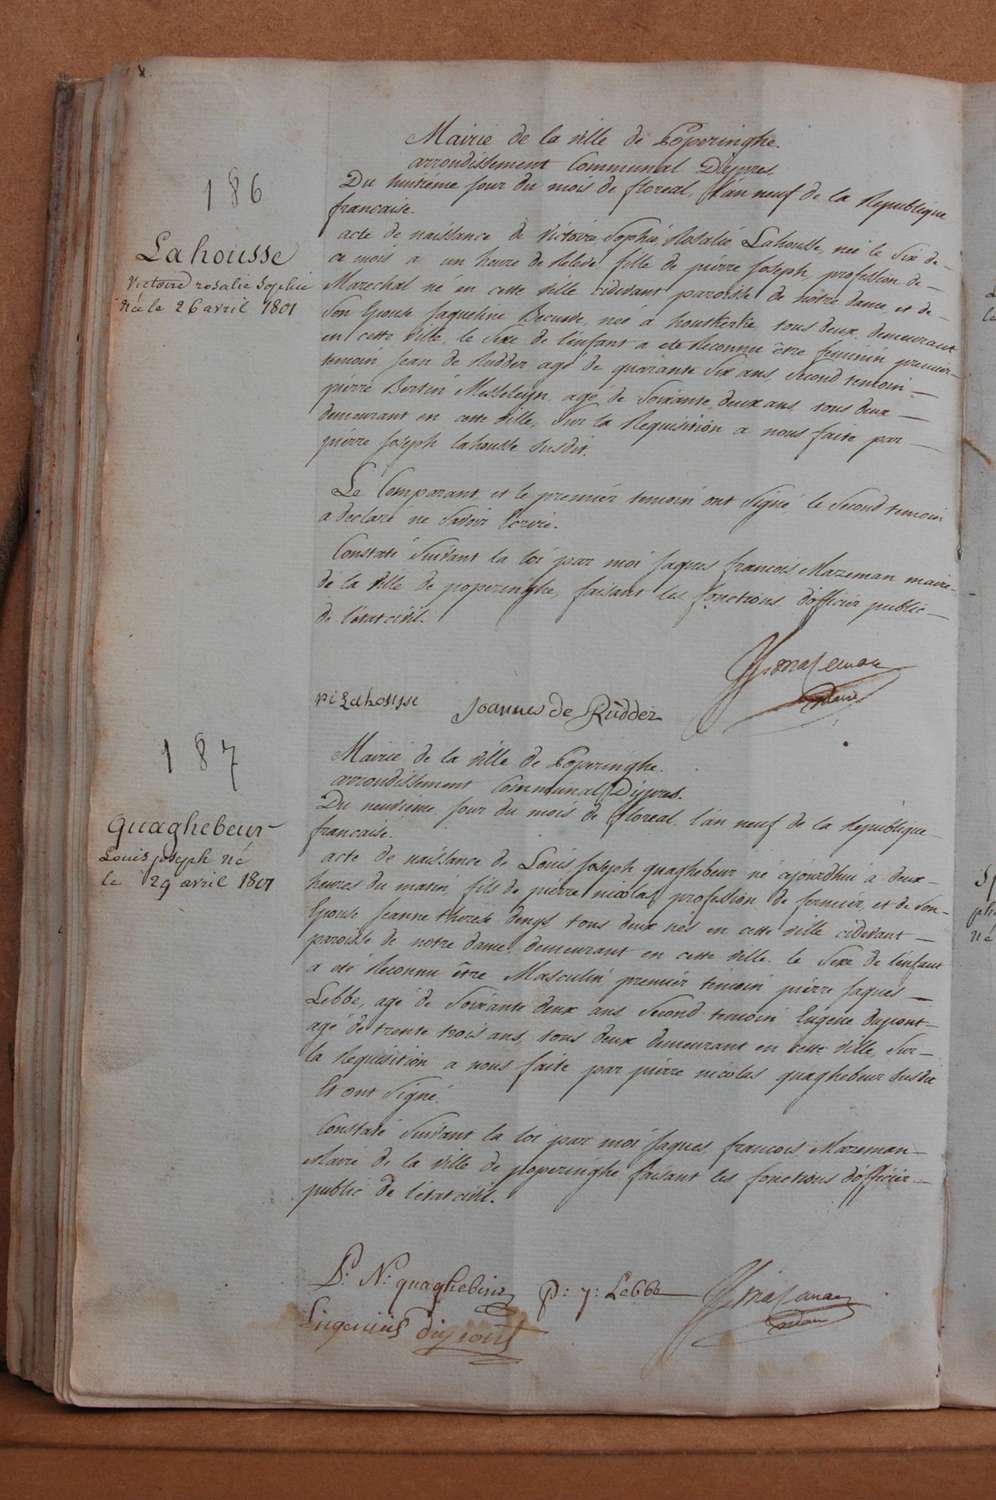 186
Lahousse
Victoire rosalie Sophie
Née le 26 avril 1801
Mairie de la ville de Poperinghe.
arrondissement Communal D'ypres
Du huitième jour du mois de floreal, l'an neuf de la Republique
francaise.
acte de naissance de Victoire Sophie Rosalie Lahousse, neé le Six de
ce mois a un heure de Relevé fille de pierre Joseph, profession de
Marechal né en cette ville cidevant paroisse de nôtre dame, et de
Son Epouse Jaqueline Becuwe, neé a houtkerke, tous deux demeurant
en cette ville, le Sexe de l'enfant a eté Reconnu être feminin premier
temoin Jean de Rudder, agé de quarante Six ans, Second temoin
pierre Bertin Messeleyn agé de Soixante deux ans, tous deux
demeurant en cette ville, Sur la Requisition a nous faite par
pierre Joseph Lahousse Susdit.
Le Comparant et le premier temoin ont Signé le Second temoin
a declaré ne Savoir Ecrire.
Constaté Suivant la loi par moi Jaques francois Mazeman maire
de la ville de poperinghe, faisant les fonctions d'officier public
de l'état civil.
pi Lahousse Joannes de Rüdder JfMazeman
maire
187
quaghebeur
Louis joseph né
le 29 avril 1801
Mairie de la ville de Poperinghe.
arrondissement Communal D'ypres.
Du neuvieme jour du mois de floreal l'an neuf de la Republique
francaise.
acte de naissance de Louis Joseph quaghebeur né cejourdhui à deux
heures du matin, fils de pierre nicolas, profession de fermier, et de Son
Epouse Jeanne therese denys tous deux nés en cette ville cidevant
paroisse de notre dame, demeurant en cette ville. le Sexe de l'enfant
a eté Reconnu être Masculin premier temoin pierre Jaques
Lebbe, agé de Soixante deux ans Second temoin Eugene dupont
agé de trente trois ans, tous deux demeurant en cette ville, Sur
la Requisition a nous faite par pierre nicolas quaghebeur Susdit
Et ont Signé.
Constaté Suivant la loi par moi Jaques francois Mazeman
Maire de la ville de poperinghe faisant les fonctions d'officier
public de l'état civil.
P: N: quaghebeur P: J: Lebbe JfMazeman
Eugeniüs düpont maire